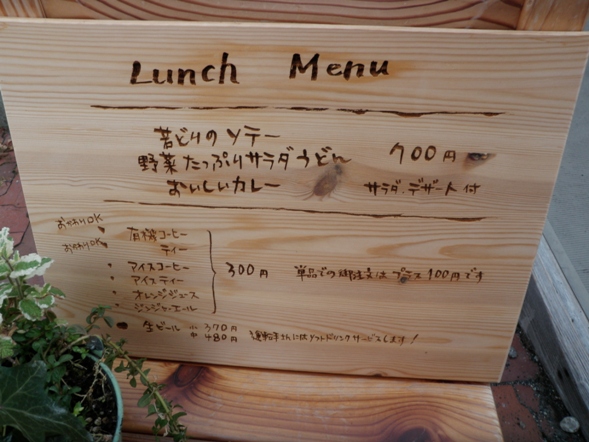 Lunch Menu
若どりのソテー
野菜たっぷりサラダうどん 700円
おいしいカレー サラダ、デザート付
おかわりOK 有機コーヒー
おかわりOK ティー
・アイスコーヒー 300円 単品での御注文は プラス100円です
・アイスティー
・オレンジジュース
・ジンジャーエール
● 生ビール 小 370円
中 480円 運転手さんにはソフトドリンクサービスします!